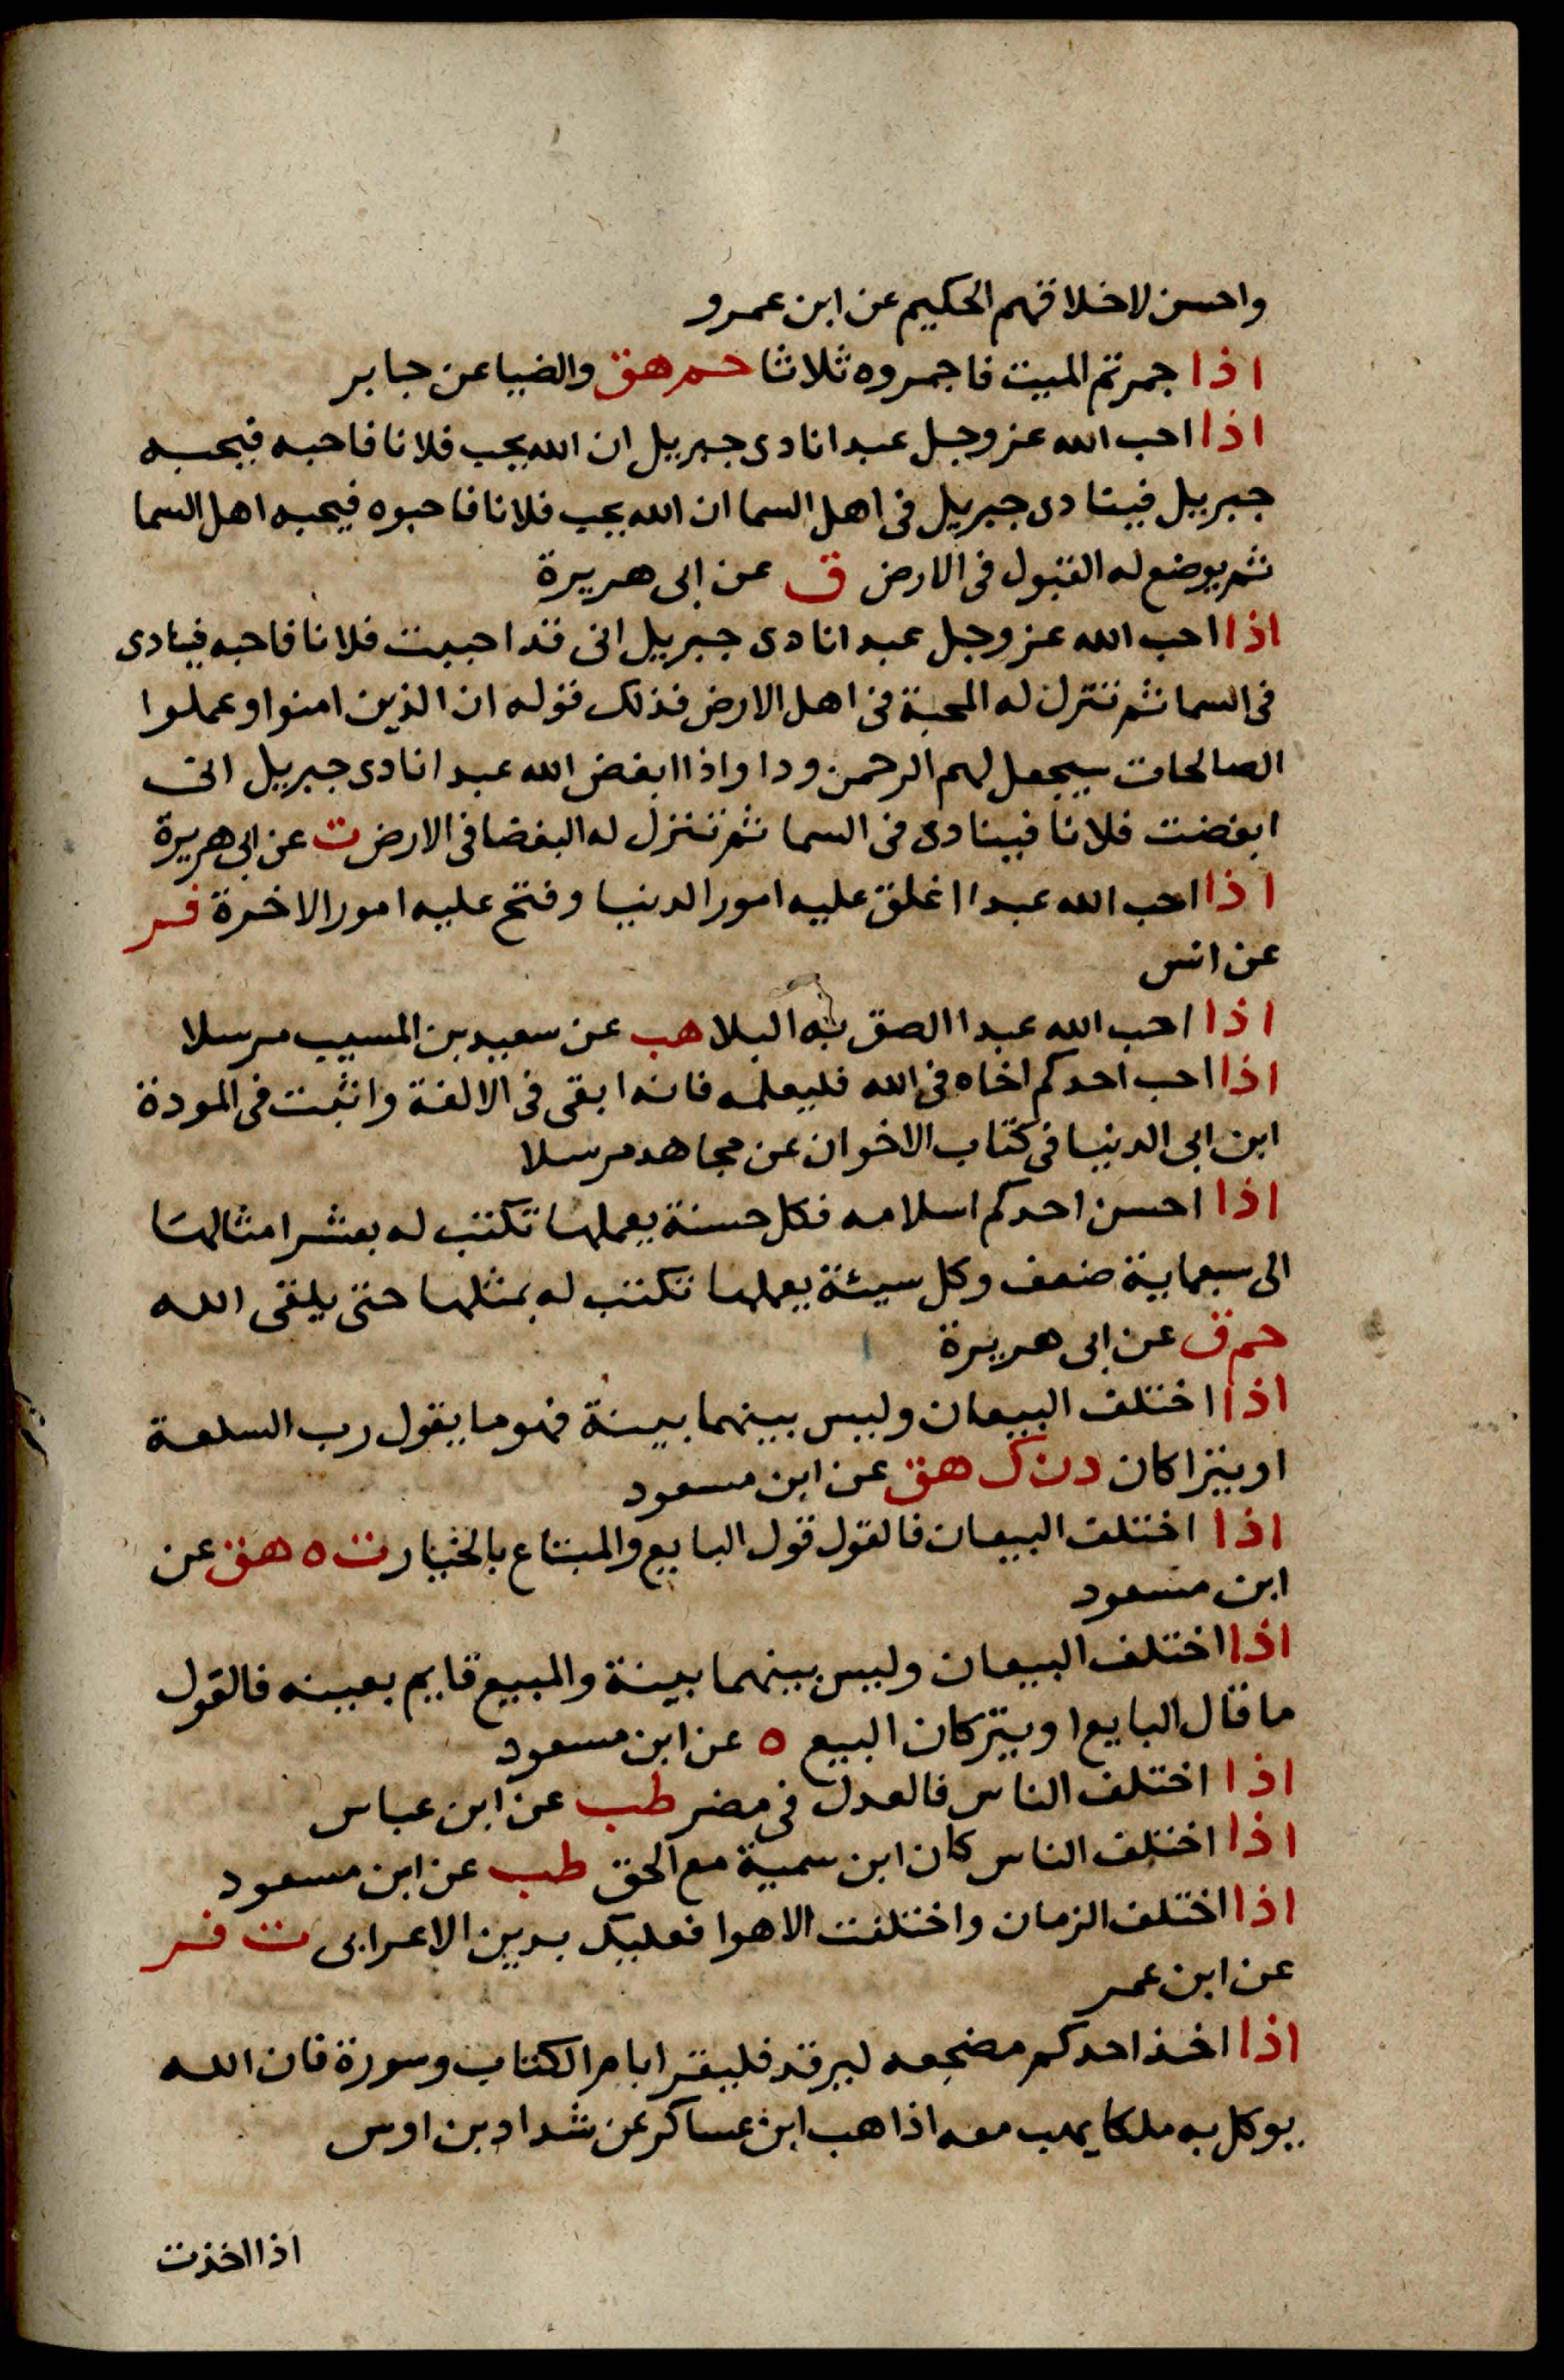 واحسن لاخلاقهم الحكيم عن ابن عمرو
اذا جمرتم الميت فاجمروه ثلاثا حم هق والضيا عن جابر
اذا احب الله عز وجل عبدا نادى جبريل ان الله يحب فلانا فاحبه فيحبه
جبريل فينادى جبريل فى اهل السما ان الله يحب فلانا فاحبوه فيحبه اهل السما
ثم يوضع له القبول فى الارض ق عن ابى هريرة
اذا احب الله عز وجل عبدا نادى جبريل انى قد احببت فلانا فاحبه فينادى
فى السما ثم تنزل له المحبة فى اهل الارض فذلك قوله ان الذين امنوا وعملوا
الصالحات سيجعل لهم الرحمن ودا واذا ابغض الله عبدا نادى جبريل انى
ابغضت فلانا فينادى فى السما ثم تنزل له البغضا فى الارض ت عن ابى هريرة
اذا احب الله عبدا اغلق عليه امور الدنيا وفتح عليه امور الاخرة فر
عن انس
اذا احب الله عبدا الصق به البلا هب عن سعيد بن المسيب مرسلا
اذا احب احدكم اخاه فى الله فليعلمه فانه ابقى فى الالفة واثبت فى المودة
ابن ابى الدنيا فى كتاب الاخوان عن مجاهد مرسلا
اذا احسن احدكم اسلامه فكل حسنة يعملها تكتب له بعشر امثالها
الى سبعماية ضعف وكل سيئة يعملها تكتب له بمثلها حتى يلقى الله
حم ق عن ابى هريرة
اذا اختلف البيعان وليس بينهما بينة فهو ما يقول رب السلعة
او يتزاكان د ن ك هق عن ابن مسعود
اذا اختلف البيعان فالقول قول البايع والمبتاع بالخيار ت ه هق عن
ابن مسعود
اذا اختلف البيعان وليس بينهما بينة والمبيع قايم بعينه فالقول
ما قال البايع او يتركان البيع ه عن ابن مسعود
اذا اختلف الناس فالعدل فى مضر طب عن ابن عباس
اذا اختلف الناس كان ابن سمية مع الحق طب عن ابن مسعود
اذا اختلف الزمان واختلفت الاهوا فعليك بدين الاعرابى ت فر
عن ابن عمر
اذا اخذ احدكم مضجعه ليرقد فليقرا بام الكتاب وسورة فان الله
يوكل به ملكا يهب معه اذا هب ابن عساكر عن شداد بن اوس
اذا اخذت